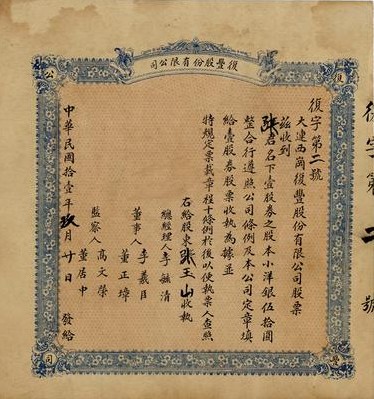 復豐股份有限公司
復
公
豐
司
復字第二號
大連西崗復豐股份有限公司股票
茲收到
張君名下壹股券之股本小洋銀伍拾圓
整合行遵照公司條例及本公司定章填
給壹股券股票收執為據並
特規定票載章程條例於後以便執票人查照
右給股東張玉山收執
總經理人李毓清
董事人
李羲臣
董正璋
監察人
高文榮
董居中
中華民國拾壹年玖月廿日發給
復字第二號